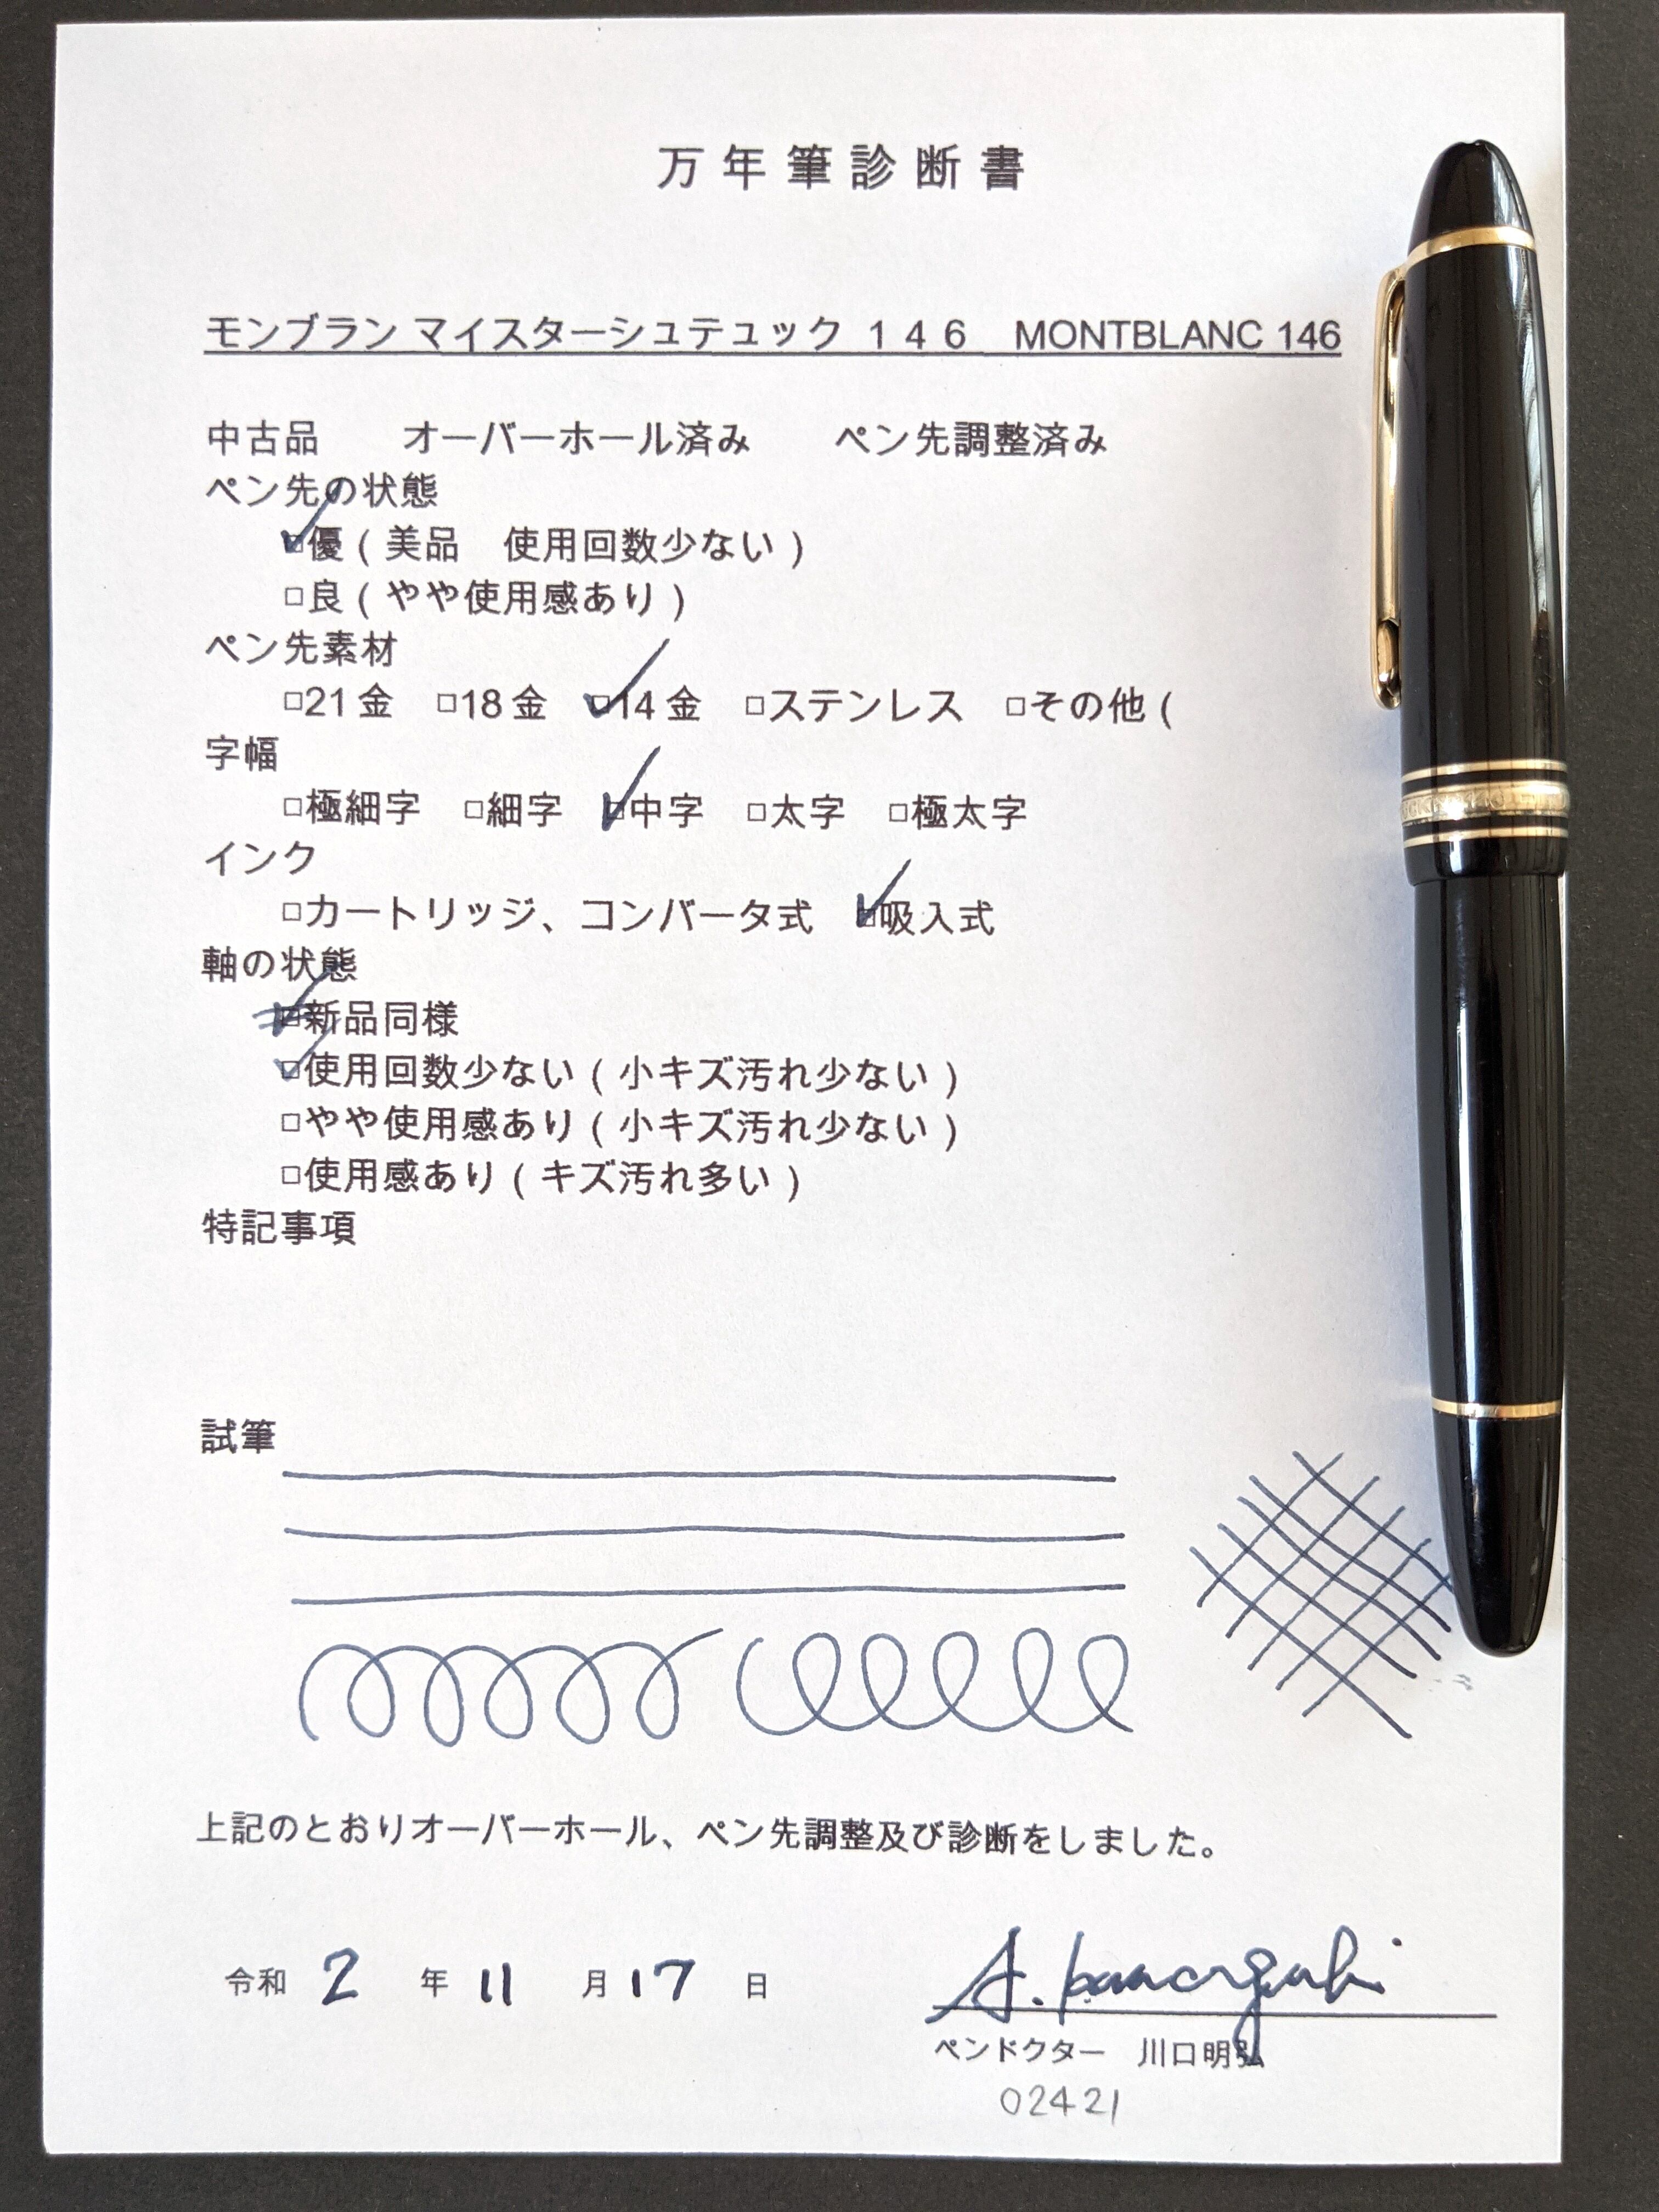 万年筆診断書
モンブラン マイスターシュテュック １４６　MONTBLANC 146
中古品　　オーバーホール済み　　ペン先調整済み
ペン先の状態
☑優（美品　使用回数少ない）
□良（やや使用感あり）
ペン先素材
□21金　□18金　☑14金　□ステンレス　□その他（
字幅
□極細字　□細字　☑中字　□太字　□極太字
インク
□カートリッジ、コンバータ式　☑吸入式
軸の状態
☑新品同様
☑使用回数少ない（小キズ汚れ少ない）
□やや使用感あり（小キズ汚れ少ない）
□使用感あり（キズ汚れ多い）
特記事項
試筆
上記のとおりオーバーホール、ペン先調整及び診断をしました。
令和 2 年 11 月 17 日
A. Kawaguchi
ペンドクター　川口明弘
02421